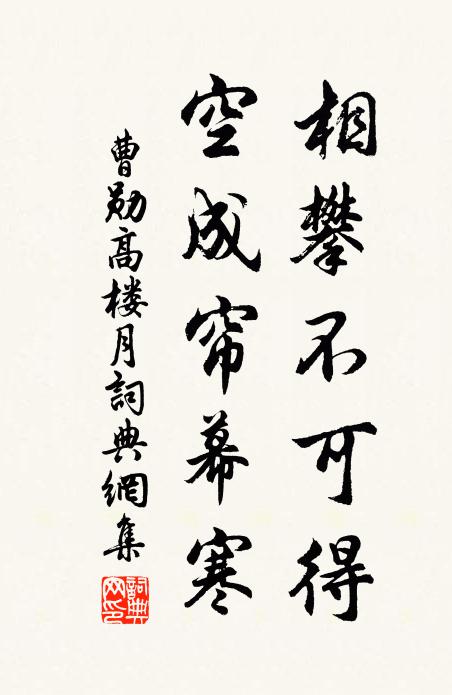 相攀不可得
空成帘幕寒
曹勋高楼月詞典網集
詞典网印